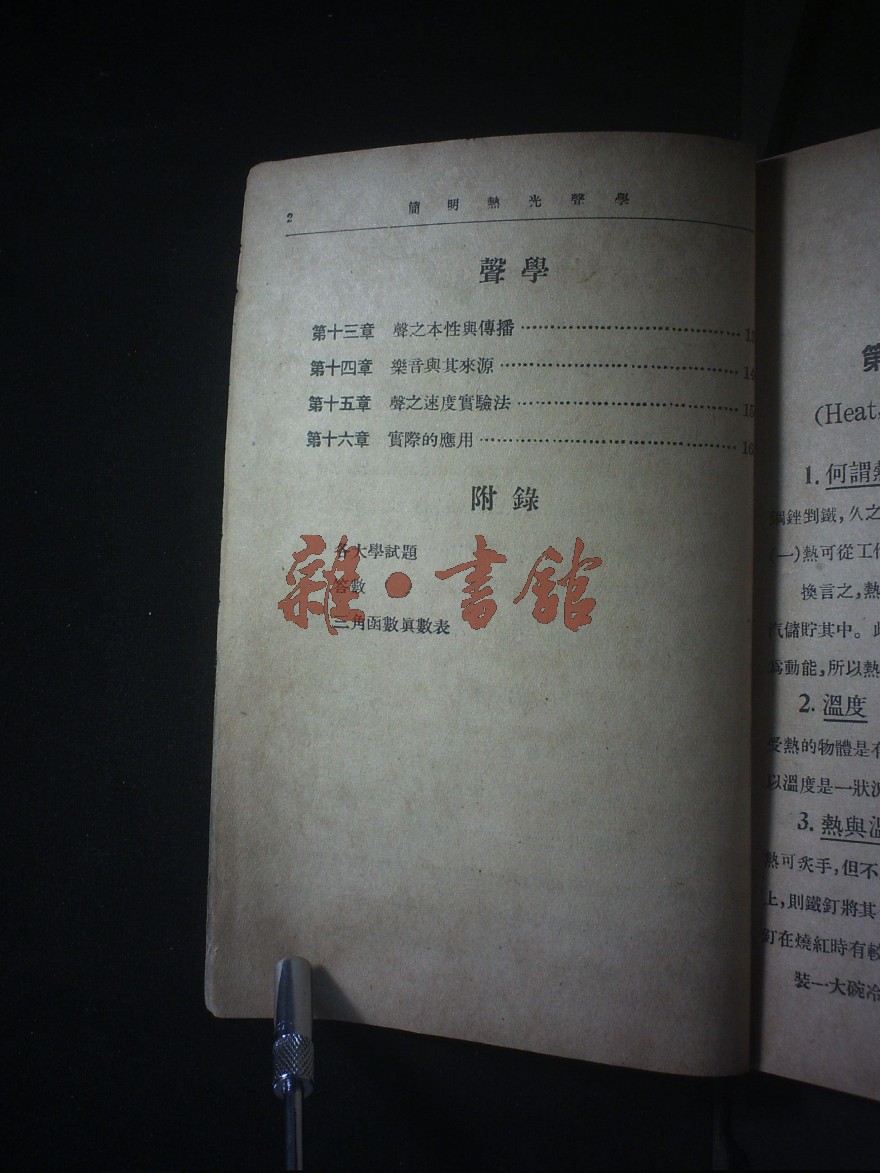 2
簡明熱光聲學
聲學
第十三章 聲之本性與傳播
第十四章 樂音與其來源
第十五章 聲之速度實驗法
第十六章 實際的應用
附錄
各大學試題
答數
三角函數眞數表
雜·書館
第
(Heat
1. 何謂熱
鋼銼剉鐵,久之
(一)熱可從工作
換言之,熱
汽儲貯其中。
爲動能,所以熱
2. 溫度
受熱的物體是有
以溫度是一狀況
3. 熱與溫
熱可炙手,但不
上,則鐵釘將其
釘在燒紅時有較
裝一大碗冷